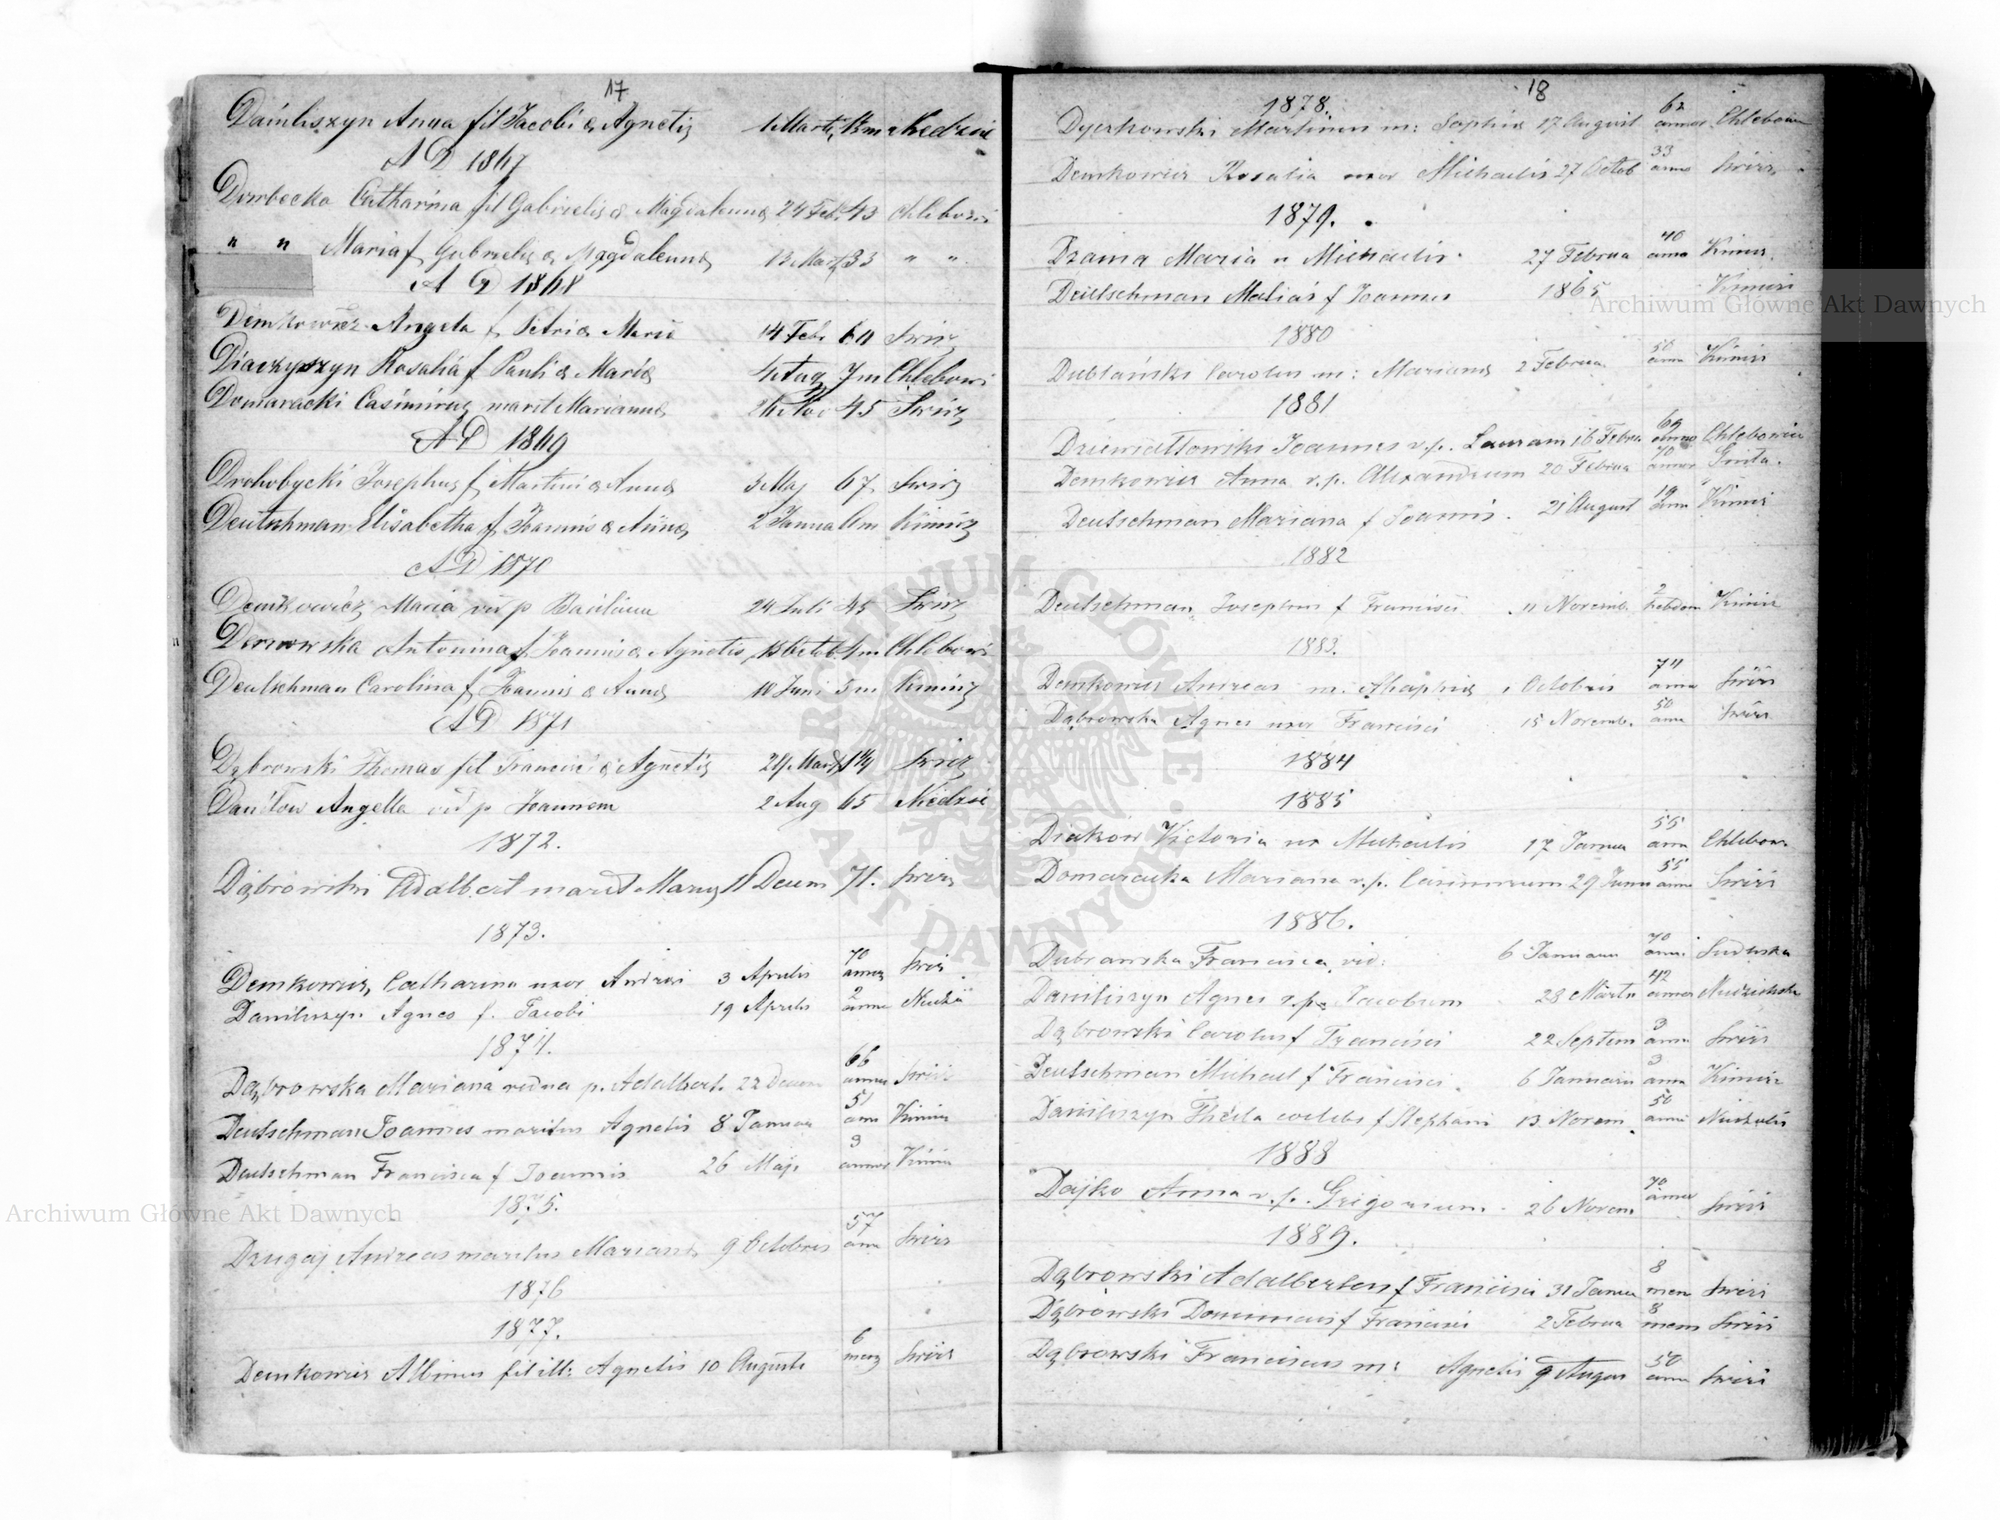 17
Daniliszyn Anna fil Jacobi & Agnetis Marti
A D 1867
Dembecka Catharina fil Gabrielis & Magdalenae 24 Feb 43 Chlebowi
" " Maria f Gabrielis & Magdalenae 13 Mar 33 " "
A D 1868
Demkowicz Angela f Petri & Mariae 14 Feb 60 Swirz
Diaczyszyn Rosalia f Pauli & Mariae Aug 7 m Chlebowi
Domaracki Casimirus marit Mariannae Nov 45 Swirz
A D 1869
Drohobycki Josephus f Martini & Annae 3 Maj 67 Swirz
Deutschman Elisabetha f Joannis & Annae 2 Janua m Kimirz
A D 1870
Demkowicz Maria vid p Basilium 24 Juli 45 Swirz
Antonina f Joannis & Agnetis Octob m Chlebowi
Deutschman Carolina f Joannis & Annae 10 Juni 5 m Kimirz
A D 1871
Dąbrowski Thomas fil Francisci & Agnetis Swirz
Danilow Angella vid p Joannem 2 Aug 65 Niedzie
1872.
Dąbrowski Adalbert marit Mariae Decem 71. Swirz
1873.
Demkowicz Catharina uxor Andreae 3 Aprilis 70 annor Swirz
Daniliszyn Agnes f. Jacobi 19 Aprilis 2 anno
1874.
Dąbrowska Mariana vidua p. Adalbert. 22 Decem 66 annor Swirz
Deutschman Joannes maritus Agnetis 8 Januar 51 ann Kimirz
Deutschman Francisca f Joannis 26 Maji 3 annor Kimir
1875.
Dzugaj Andreas maritus Marianae 9 Octobris 57 ann Swirz
1876
1877.
Demkowicz Albinus fil ill: Agnetis 10 Augusti 6 menz Swirz
18
1878.
Martinus m: Sophiae 17 August 62 annor Chlebow
Demkowicz Rosalia uxor Michaelis 27 Octob 33 anno Swirz
1879.
Dzama Maria u Michaelis. 27 Februa 40 anno Kimirz
Deutschman f Joannes 1865 Kimirz
1880
Dublański Carolus m: Marianae 2 Februa 50 anno Kimirz
1881
Joannes v. p. Lauram 16 Februa 69 annor Chlebowi
Demkowicz Anna v. p. Alexandrum 20 Februa 70 annor
Deutschman Mariana f Joannis. 21 August 19 ann Kimirz
1882
Deutschman Josephus f Francisci 11 Novemb. 2 hebdom Kimirz
1883.
Demkowicz Andreas m. Ahaphiae 1 Octobris 74 anno Swirz
Dąbrowska Agnes uxor Francisci 15 Novemb. 50 ann Swirz
1884
1885
Diakow Victoria ux Michaelis 17 Janua 55 ann Chlebow
Domaracka Mariana v. p. Casimirum 29 Janua 55 ann Swirz
1886.
Dubrawska Francisca vid: 6 Januari 70 anni
Daniliszyn Agnes v. p. Jacobum 28 Martii 42 annor
Dąbrowski Carolus f Francisci 22 Septem 3 ann Swirz
Deutschman Michael f Francisci. 6 Januarii 3 ann Kimirz
Daniliszyn Thecla coelebs f Stephani 13 Novem. 50 anni
1888
Dajko Anna v. p. Grigorium. 26 Novem 70 annor Swirz
1889.
Dąbrowski Adalbertus f Francisci 31 Janua 8 mens Swirz
Dąbrowski Dominicus f Francisci 2 Februa 8 mens Swirz
Dąbrowski Franciscus m: Agnetis 9 Augus 50 ann Swirz
Archiwum Główne Akt Dawnych
Archiwum Główne Akt Dawnych
ARCHIWUM GŁÓWNE AKT DAWNYCH